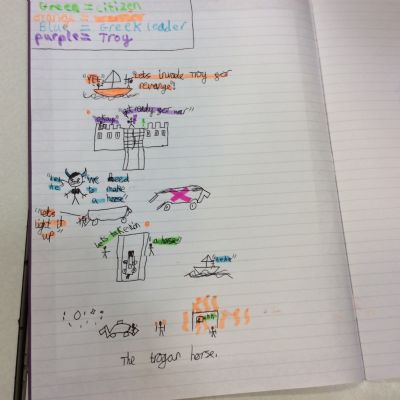 Green = citizen
orange =
Blue = Greek leader
purple = Troy
"Yes"
"Lets invade Troy for
revenge!
"get ready for war"
"okay"
"we need
to make
a horse"
"Lets
light it
up"
Lets take it in
a horse"
The trogan horse.